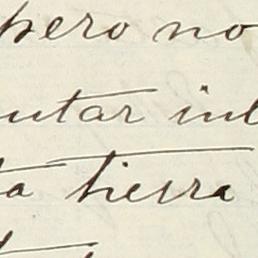 pero no
utar in
ta tierra